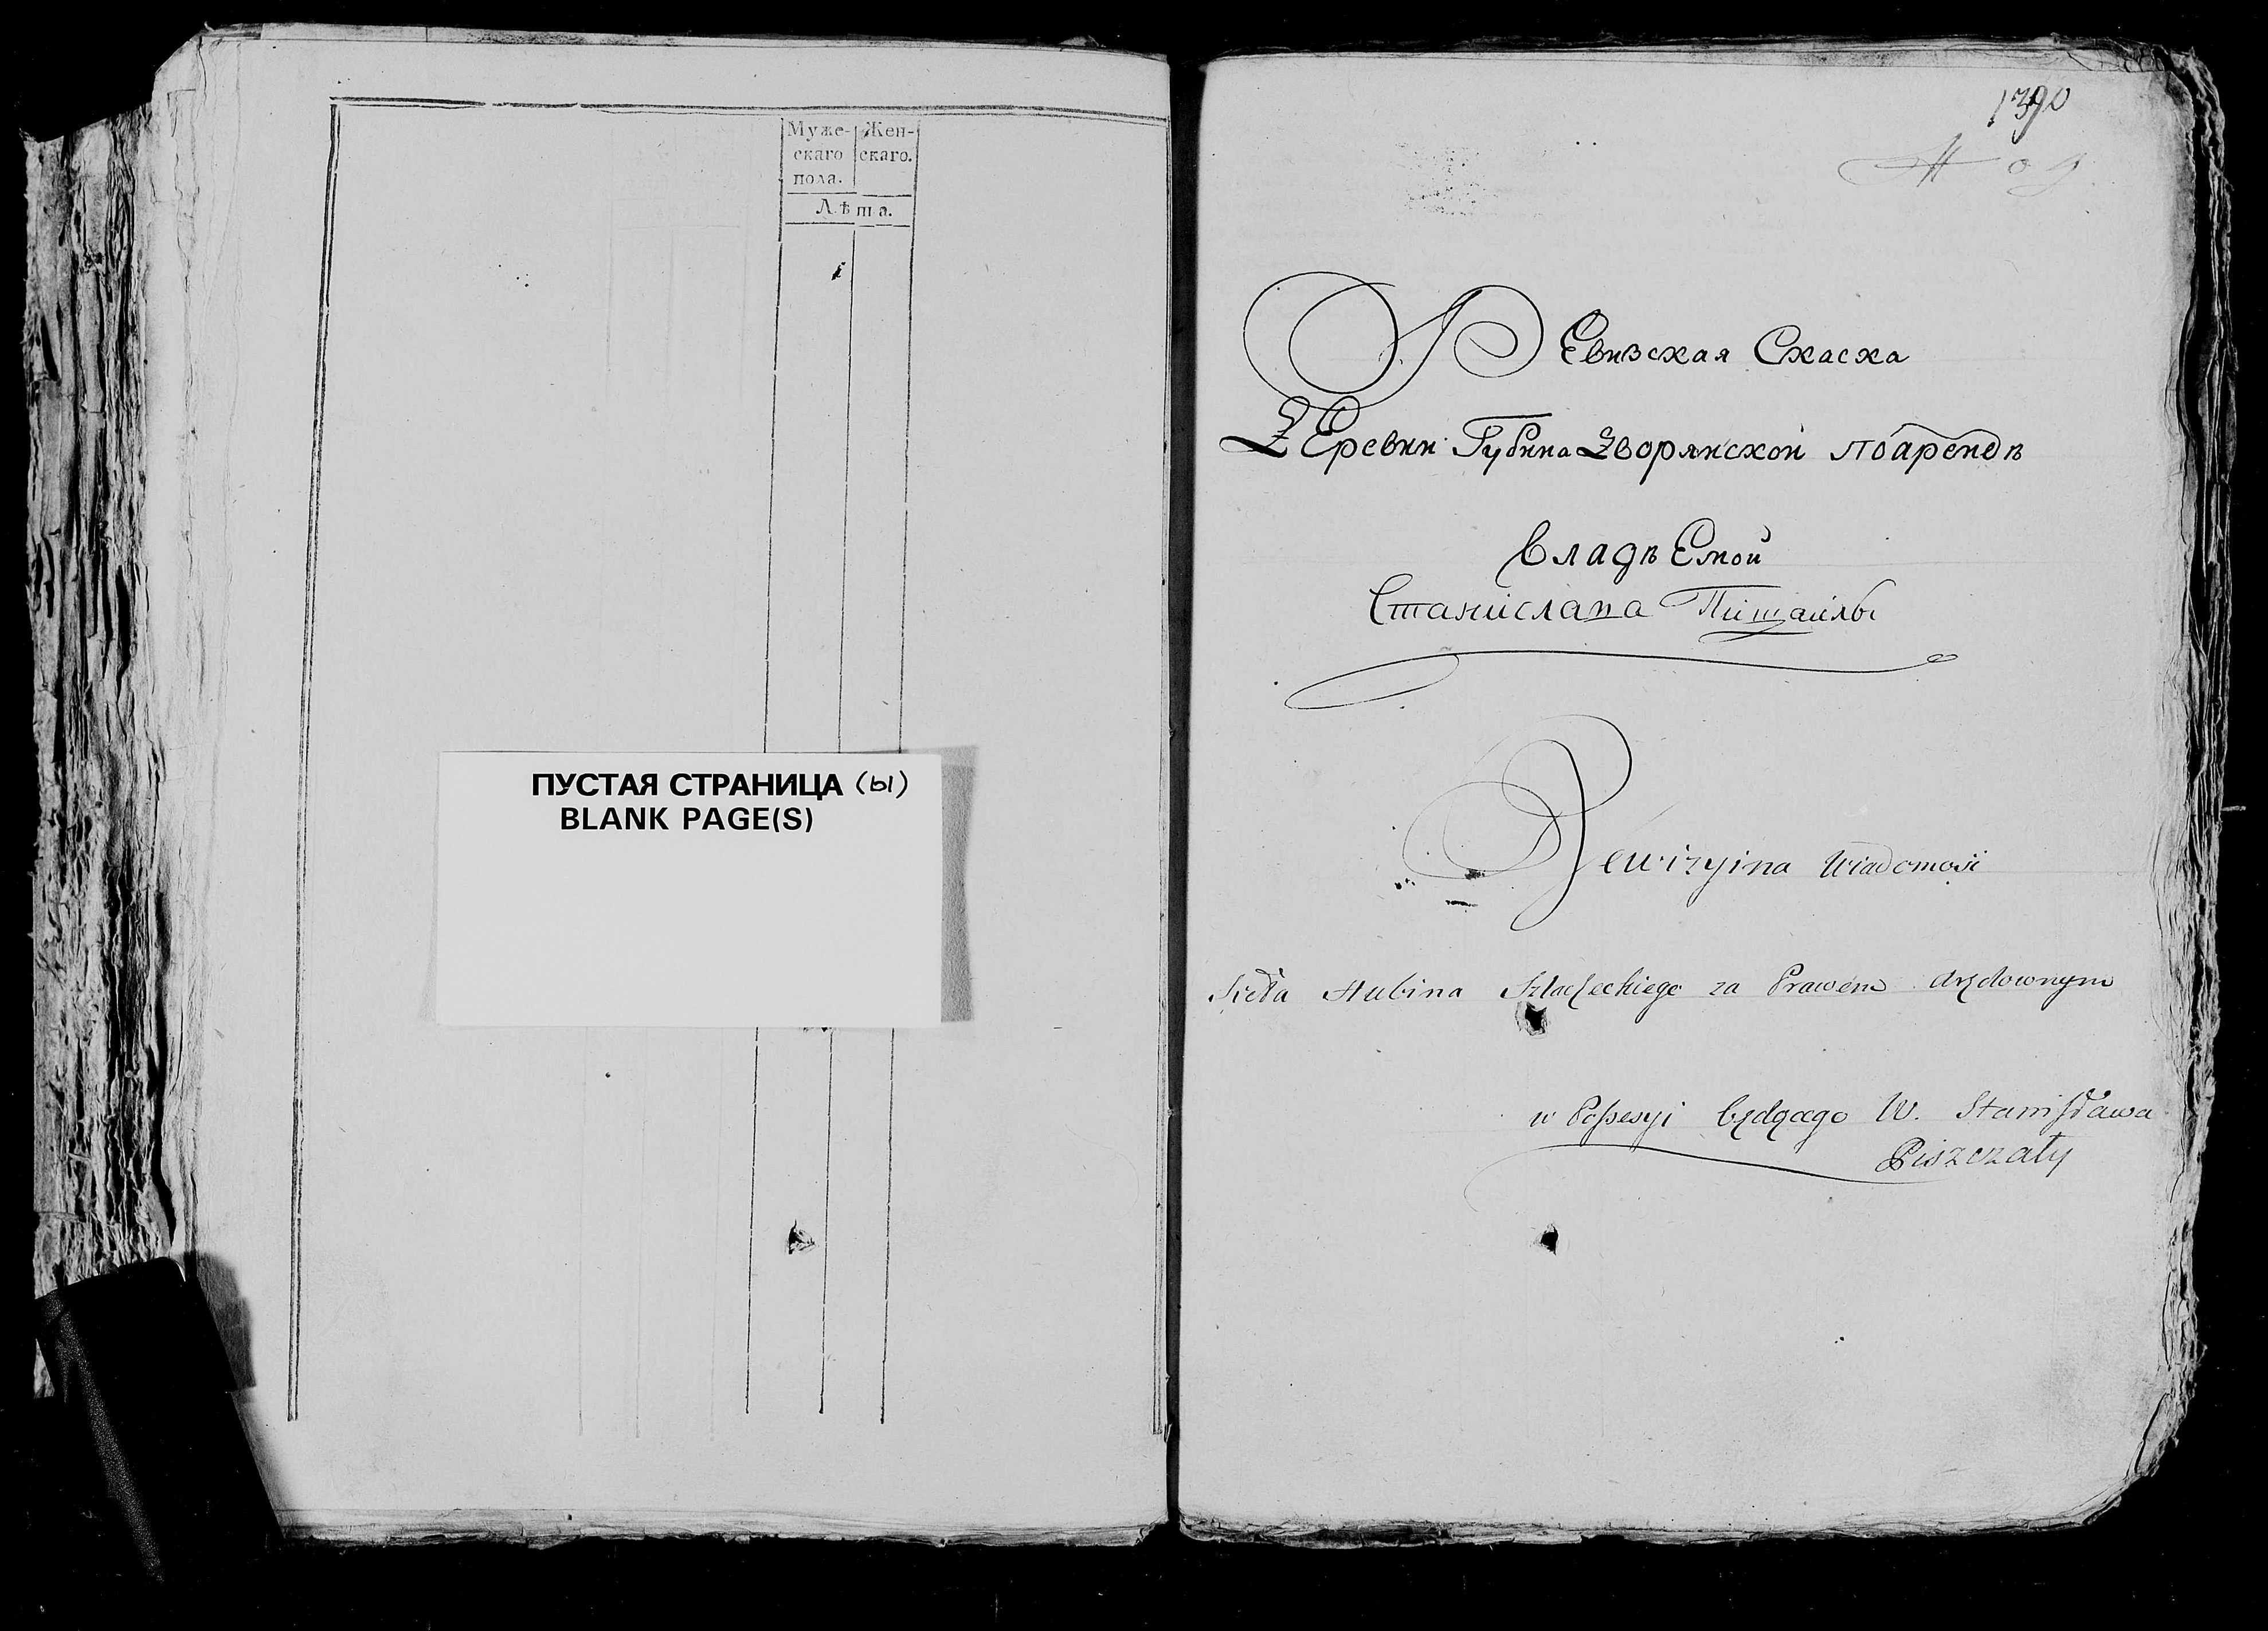 Муже- Жен-
скаго скаго.
пола.
Лѣта.
ПУСТАЯ СТРАНИЦА (ы)
BLANK PAGE(S)
1390
РЕвизская Скаска
ДЕревни Губина Дворянской поарендѣ
владѣЕмой
Станислава Пищайлы
Rewizyina Wiadomość
Sioła Hubina Szlacheckiego za Prawem Arędownym
w Possesyi będącego W. Stanisława
Piszczały